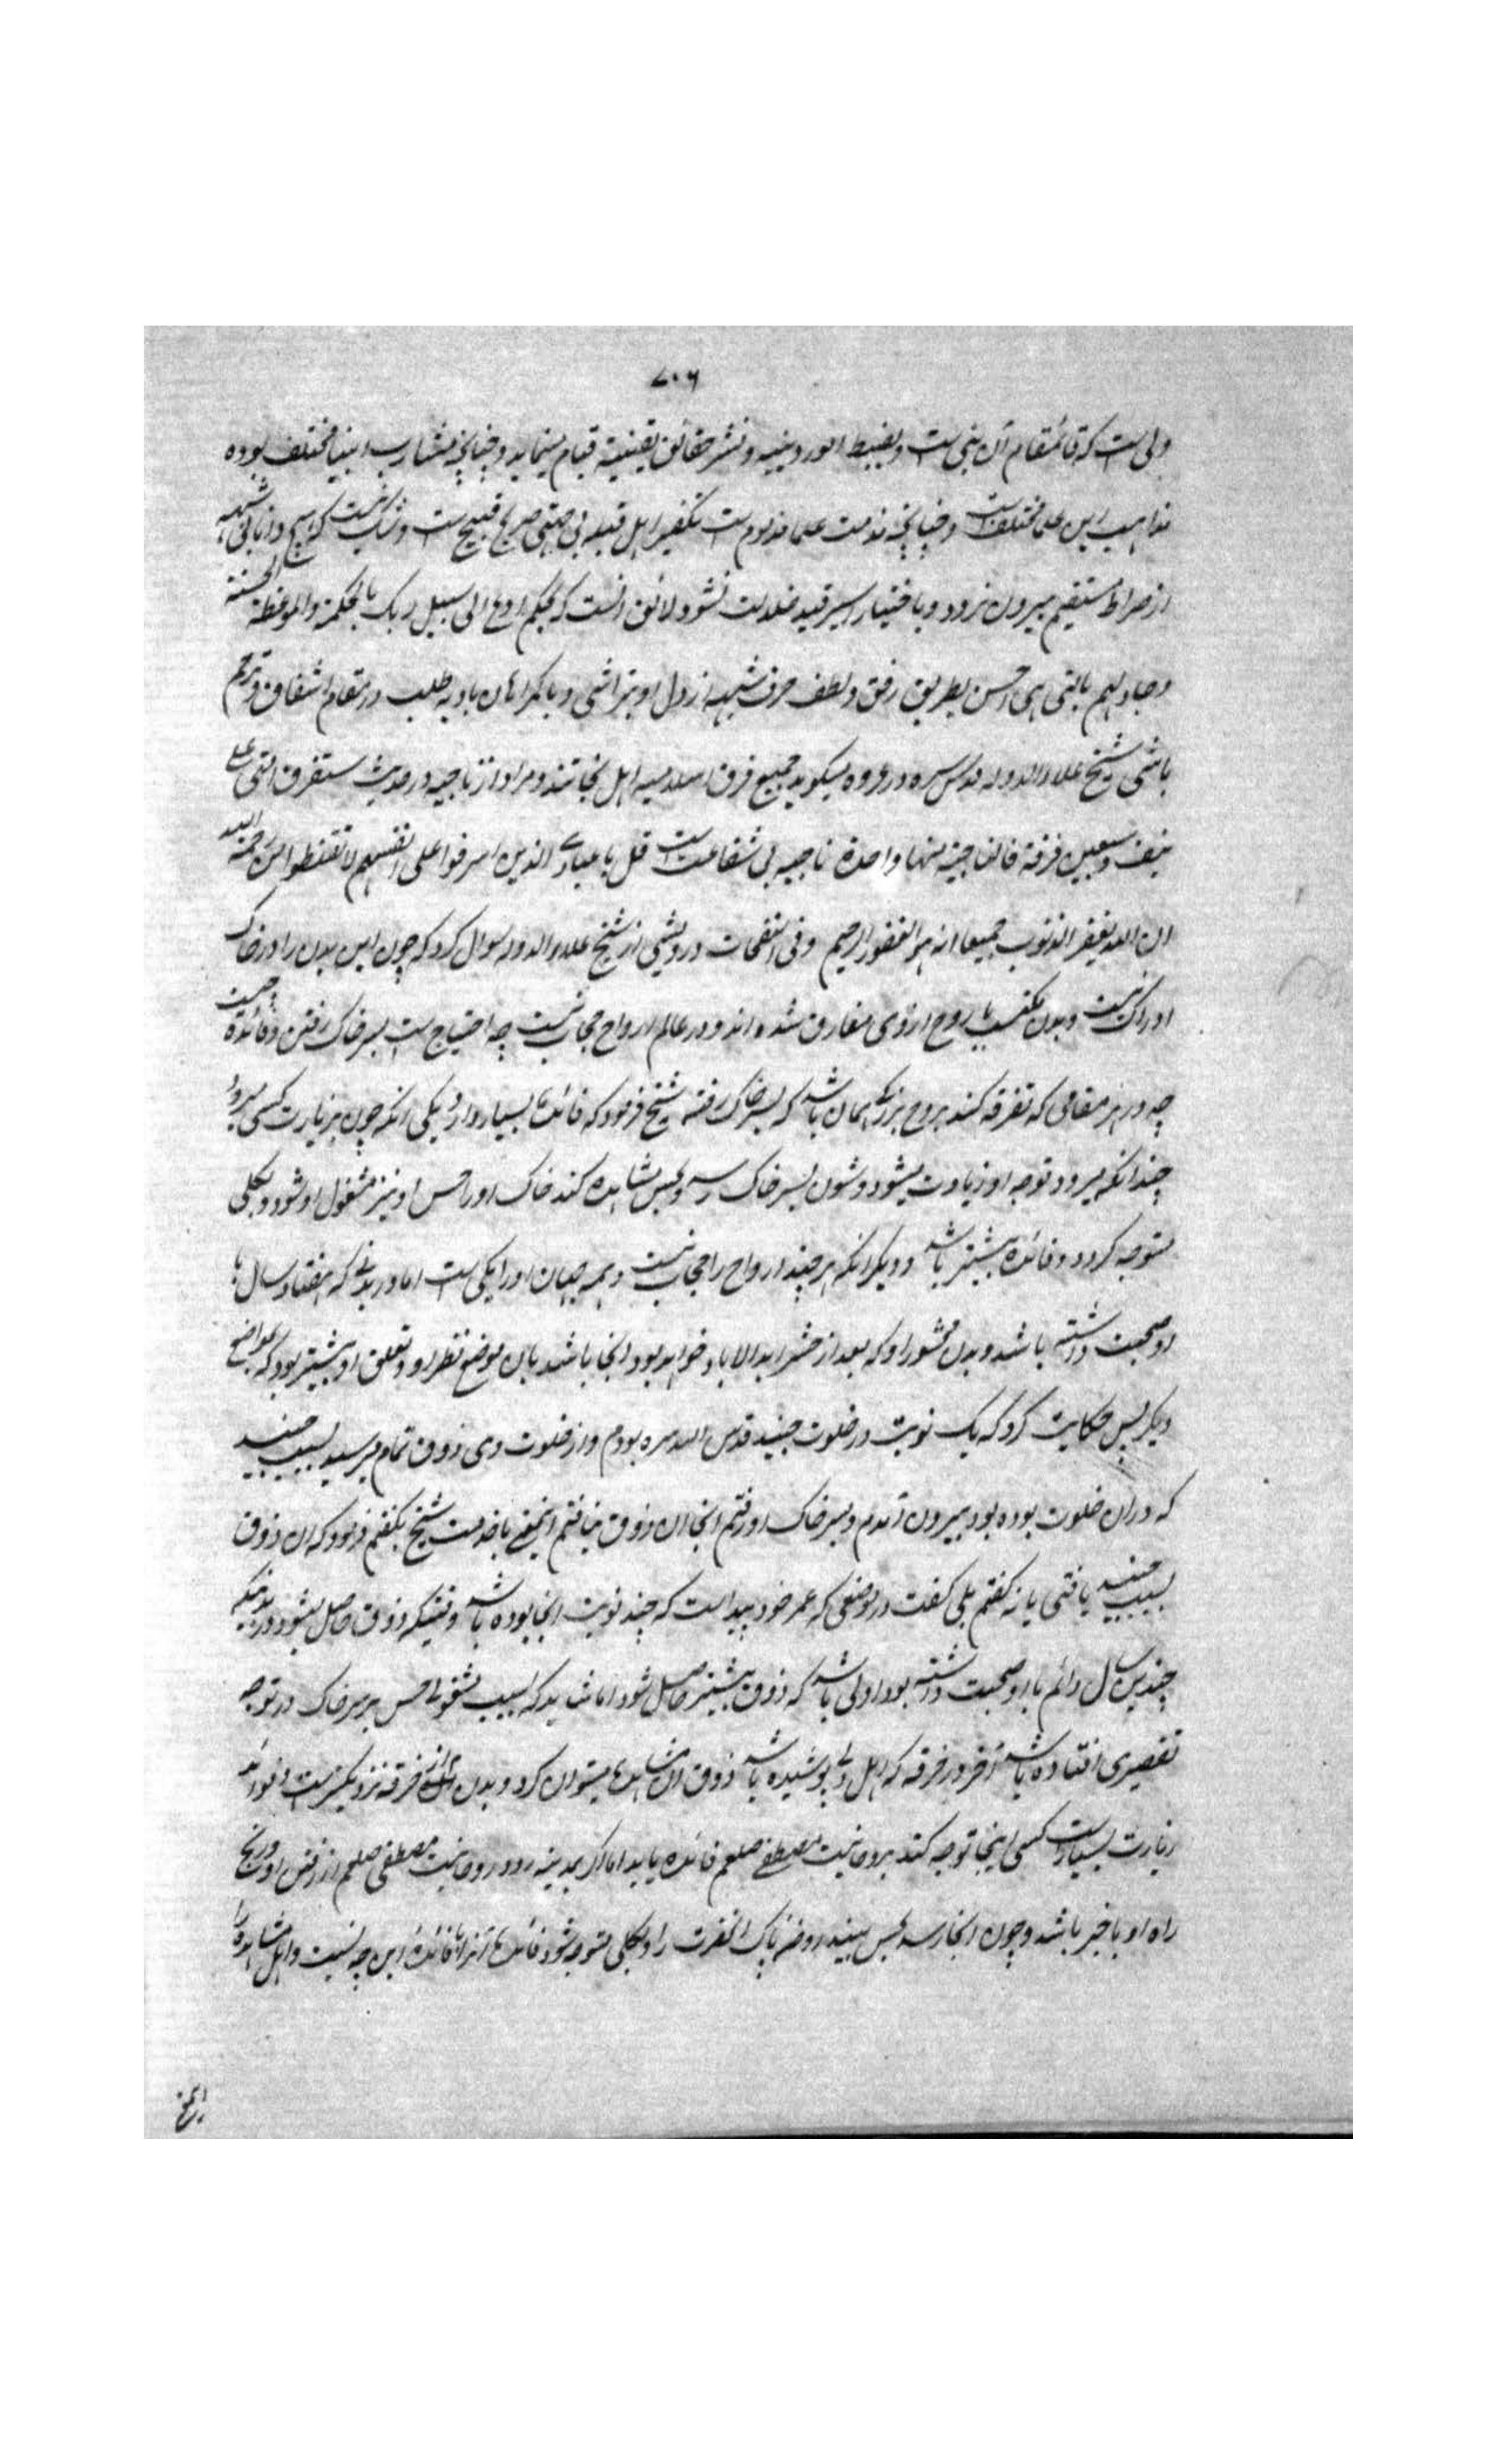 ۷۰۶
ولی است که قائمقام آن نبی است و بضبط امور دینیه و نشر حقائق یقینیه قیام مینماید و چنانچه مشارب انبیا مختلف بوده
مذاهب این علما مختلفست و چنانچه مذمت علما مذموم است تکفیر اهل قبله بی حجتی صریح قبیح است و شک نیست که هیچ دانا بی شبهه
از صراط مستقیم بیرون نرود و باختیار اسیر قید ضلالت نشود لائق آنست که بحکم ادع الی سبیل ربک بالحکمة والموعظة الحسنة
وجادلهم بالتی هی احسن بطریق رفق و لطف حرف شبهه از دل او بتراشی و با گمراهان بادیه طلب در مقام اشفاق و ترحم
باشی شیخ علاء الدوله قدس سره در عروه میگوید جمیع فرق اسلامیه اهل نجاتند و مراد از ناجیه در حدیث ستفرق امتی علی
نیف و سبعین فرقة فالناجیة منها واحدة ناجیه بی شفاعت است قل یا عبادی الذین اسرفوا علی انفسهم لا تقنطوا من رحمة الله
ان الله یغفر الذنوب جمیعا انه هو الغفور الرحیم وفی النفحات درویشی از شیخ علاء الدوله سوال کرد که چون این بدن را در خاک
ادراک نیست و بدن مکتسب با روح ازوی مفارق شده اند و در عالم ارواح حجاب نیست چه احتیاج است بسر خاک رفتن و فائدة چیست
چه در هر مقامی که تفرقه کند بروح بزرگ همان باشد که بسر خاک رفته شیخ فرمود که فائده بسیار دارد یکی انکه چون بزیارت کسی میرود
چندانکه میرود توجه او زیادت میشود و چون بسر خاک رسد و بحس مشاهده کند خاک او را حس او نیز مشغول او شود و بکلی
متوجه گردد و فائده بیشتر باشد و دیگر انکه هر چند ارواح را حجاب نیست و همه جهان او را یکی است اما در بدنی که هفتاد سال با
او صحبت داشته باشد و بدن محشور او که بعد از حشر ابد الاباد خواهد بود انجا باشد بان موضع نظر او و تعلق او بیشتر بود که بمواضع
دیگر پس حکایت کرد که یک نوبت در خلوت جنید قدس الله سره بودم و از خلوت وی ذوق تمام میرسید بسبب جنید
که دران خلوت بوده بود بیرون آمدم و بسر خاک او رفتم انجا ان ذوق نیافتم اینمعنی با خدمت شیخ بگفتم فرمود که ان ذوق
بسبب جنید یافتی یا نه گفتم بلی گفت در موضعی که عمر خود پیداست که چند نوبت انجا بوده باشد وقتیکه ذوق حاصل بشود در بدنیکه
چندین سال دائم با او صحبت داشته بود اولی باشد که ذوق بیشتر حاصل شود اما شاید که بسبب مشغولی حس بر سر خاک در توجه
تقصیری افتاده باشد آخر در خرقه که اهل دلی پوشیده باشد ذوق ان مشاهده میتوان کرد و بدن از خرقه نزدیکترست و فوائد
زیارت بسیارست کسی اینجا توجه کند بروحانیت مصطفی صلعم فائده یابد اما اگر بمدینه رود روحانیت مصطفی صلعم از رفتن او و رنج
راه او با خبر باشد و چون انجا رسد بحس ببیند روضه پاک انحضرت را و بکلی متوجه شود فائده آنرا با فائده این چه نسبت و اهل مشاهده را